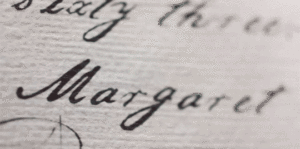 sixty three
Margaret